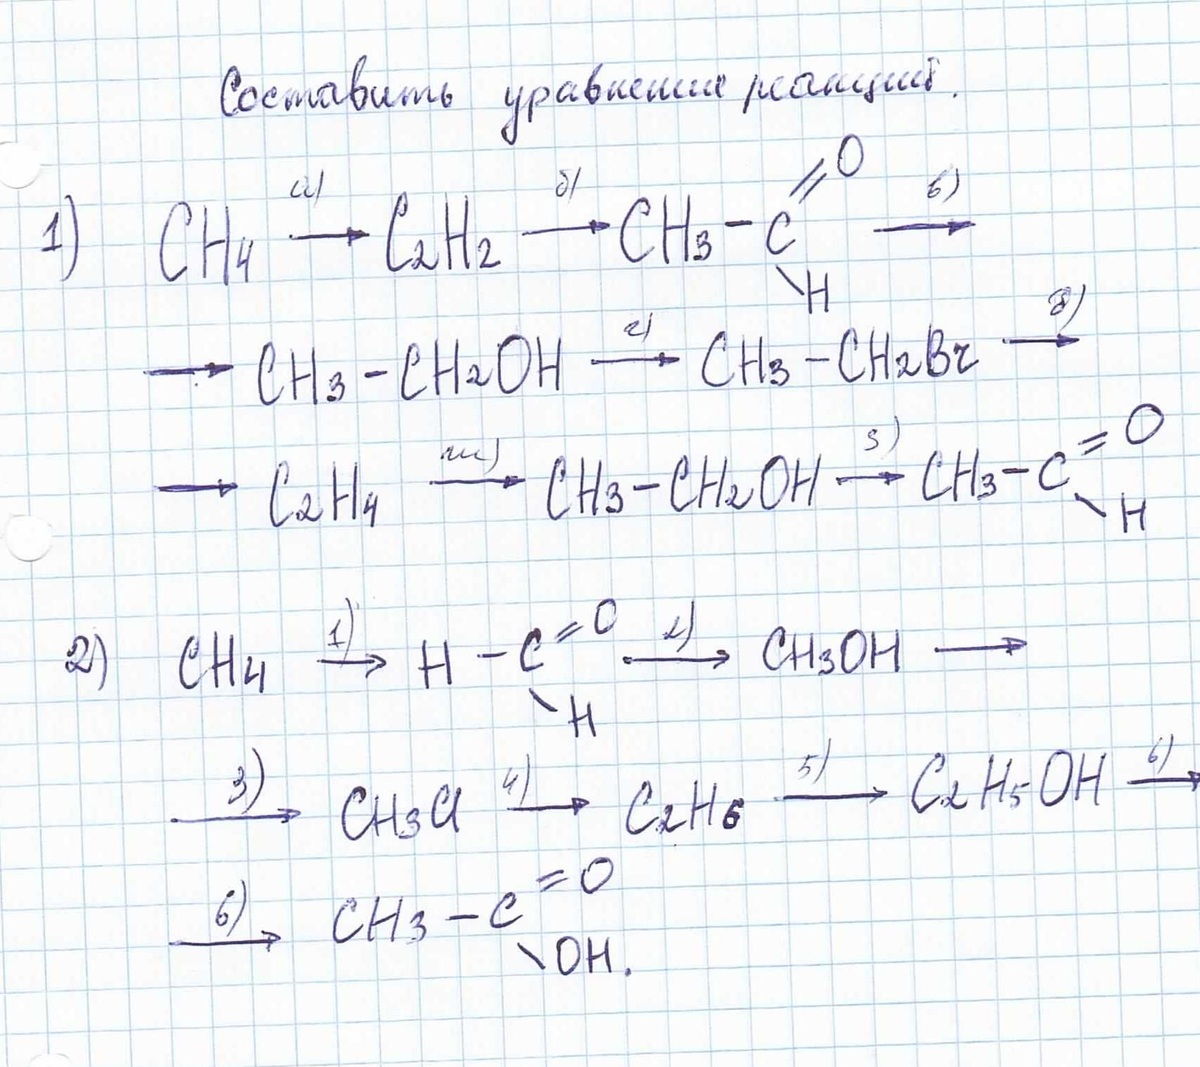 Составить уравнения реакций.
1) CH4 а)→ C2H2 б)→ CH3-C=O\H в)→
→ CH3-CH2OH г)→ CH3-CH2Br д)→
→ C2H4 ж)→ CH3-CH2OH з)→ CH3-C=O\H
2) CH4 1)→ H-C=O\H 2)→ CH3OH →
3)→ CH3Cl 4)→ C2H6 5)→ C2H5OH 6)→
6)→ CH3-C=O\OH.